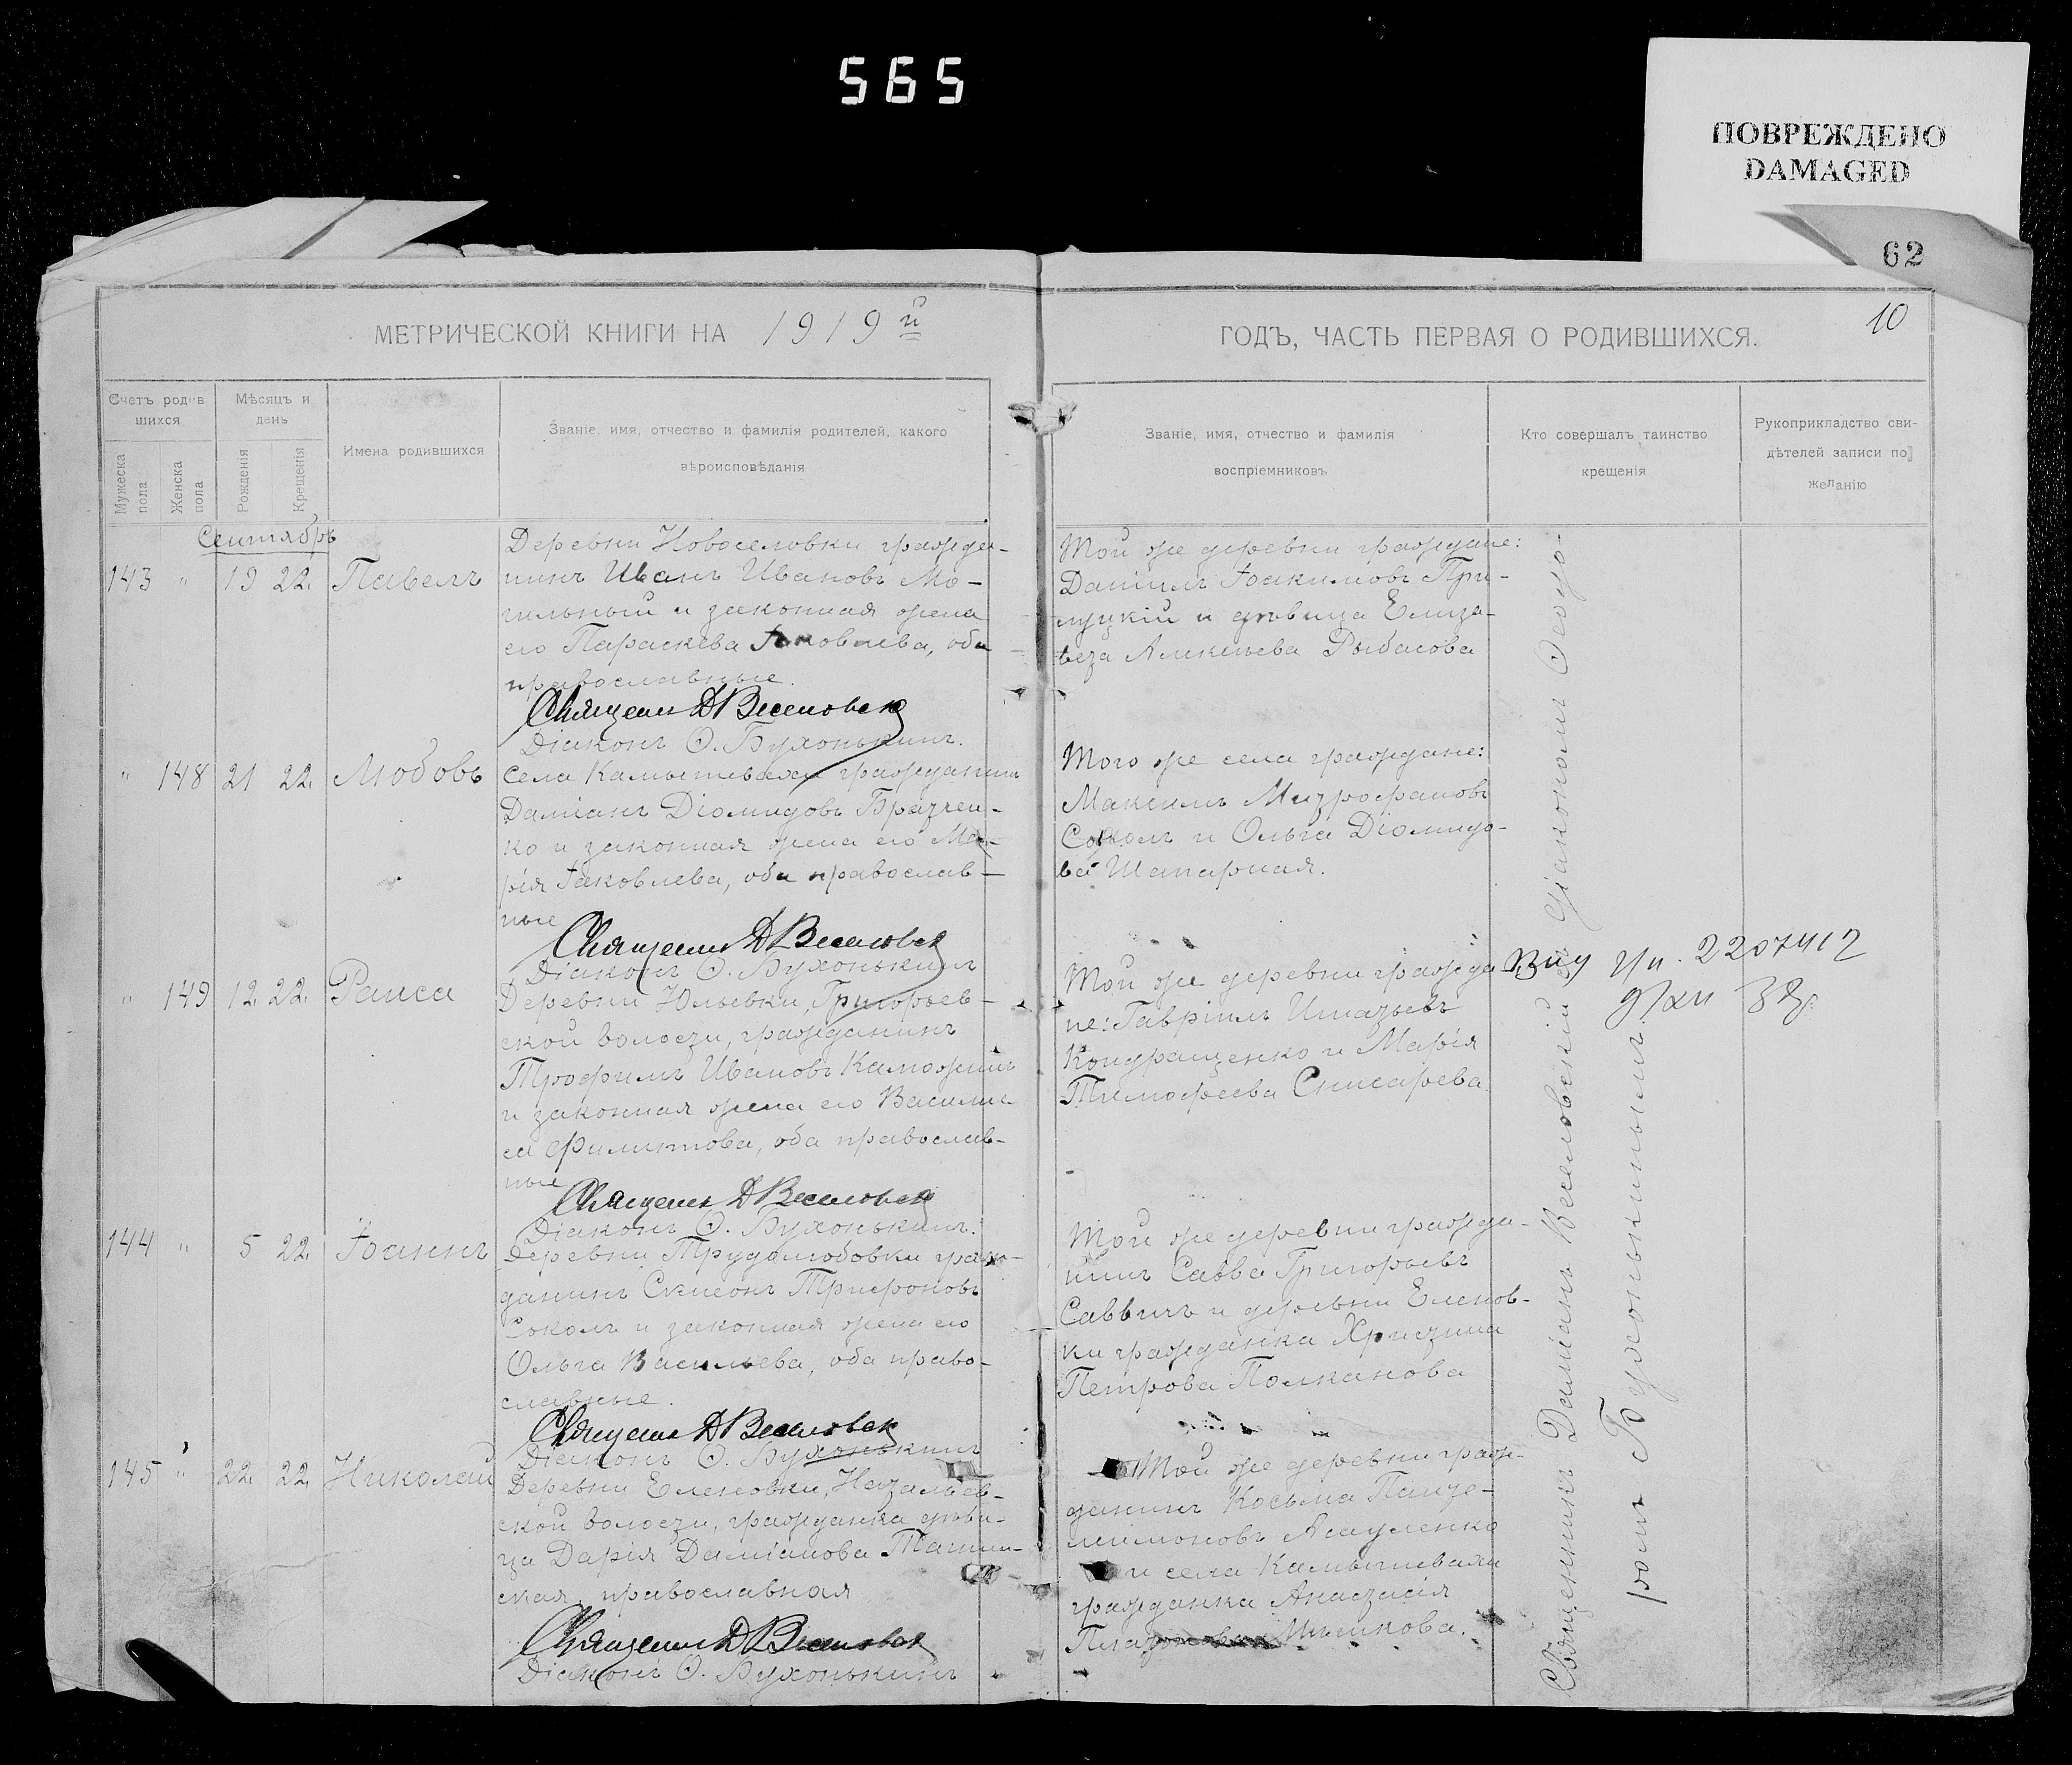 565
ПОВРЕЖДЕНО
DAMAGED
62
10
МЕТРИЧЕСКОЙ КНИГИ НА 1919й
ГОДЪ, ЧАСТЬ ПЕРВАЯ О РОДИВШИХСЯ.
Счетъ родив
шихся
Мѣсяцъ и
день
Мужеска
пола
Женска
пола
Рожденія
Крещенія
Имена родившихся
Званіе, имя, отчество и фамилія родителей, какого
вѣроисповѣданія
Званіе, имя, отчество и фамилія
воспріемниковъ
Кто совершалъ таинство
крещенія
Рукоприкладство сви-
дѣтелей записи по
желанію
Сентябрь
143 " 19 22. Павелъ
Деревни Новоселовки гражда-
нинъ Иванъ Ивановъ Мо-
гильный и законная жена
его Параскева Іаковлева, оба
православные.
Священ Д Веселовск
Діаконъ Ѳ. Бухонькинъ.
Той же деревни граждане:
Даніилъ Іоакимовъ При-
луцкій и дѣвица Елиза-
Рыбасова
" 148 21 22. Любовь
Села Камышевахи гражданинъ
Даміанъ Діомидовъ Бразчен-
ко и законная жена его Ма-
рія Іаковлева, оба православ-
ные
Священ Д Веселовск
Діаконъ Ѳ. Бухонькинъ
Того же села граждане:
Максимъ Митрофановъ
Соколъ и Ольга Діомидо-
ва Шапарная.
" 149 12 22. Раиса
Деревни Юльевки, Григорьев-
ской волости, гражданинъ
Трофимъ Ивановъ
и законная жена его Васили-
са Филиппова, оба православ-
ные
Священ Д Веселовск
Діаконъ Ѳ. Бухонькинъ.
Той же деревни гражда
не: Гавріилъ Игнатьевъ
Кондращенко и Марія
Тимофеева Снисарева.
2207412
144 " 5 22. Іоаннъ
Деревни Трудолюбовки граж-
данинъ Трифоновъ
Соколъ и законная жена его
Ольга Васильева, оба право-
славные.
Священ Д Веселовск
Діаконъ Ѳ. Бухонькинъ
Той же деревни гражда-
нинъ Савва Григорьевъ
Саввичъ и деревни Еленов-
ки гражданка Христина
Петрова Полканова
145 " 22. 22. Николай
Деревни Еленовки,
ской волости, гражданка дѣви-
ца Дарія Даміанова
ская, православная
Священ Д Веселовск
Діаконъ Ѳ. Бухонькинъ
Той же деревни граж-
данинъ Косьма Панте-
леимоновъ Асауленко
и села Камышевахи
гражданка Анастасія
Мишкова.
Священникъ Даміанъ Веселовскій съ діакономъ Ѳеодо-
ромъ Бухонькинымъ.